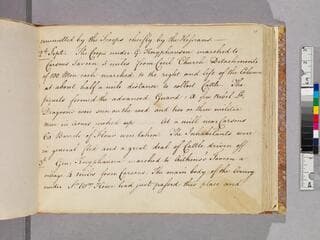 committed by the Troops chiefly by the Hessians —
2d Sept. The Corps under G. Knyphausen marched to
Carsons Tavern 5 miles from Cecil Church Detachments
of 100 Men each marched to the right and left of the Column
at about half a mile distance to collect Cattle. The
pirates formed the advanced Guard. A few Rebel Lt.
Dragoons were seen on the road and two or three militia
men in arms picked up. At a mill near Carsons
60 Barrels of Flour were taken. The Inhabitants were
in general fled and a great deal of Cattle driven off
3d Gen. Knyphausen marched to Aitkens's Tavern a
village 4 miles from Carsons. The main body of the Army
under Sr. Wm. Howe had just passed this place and